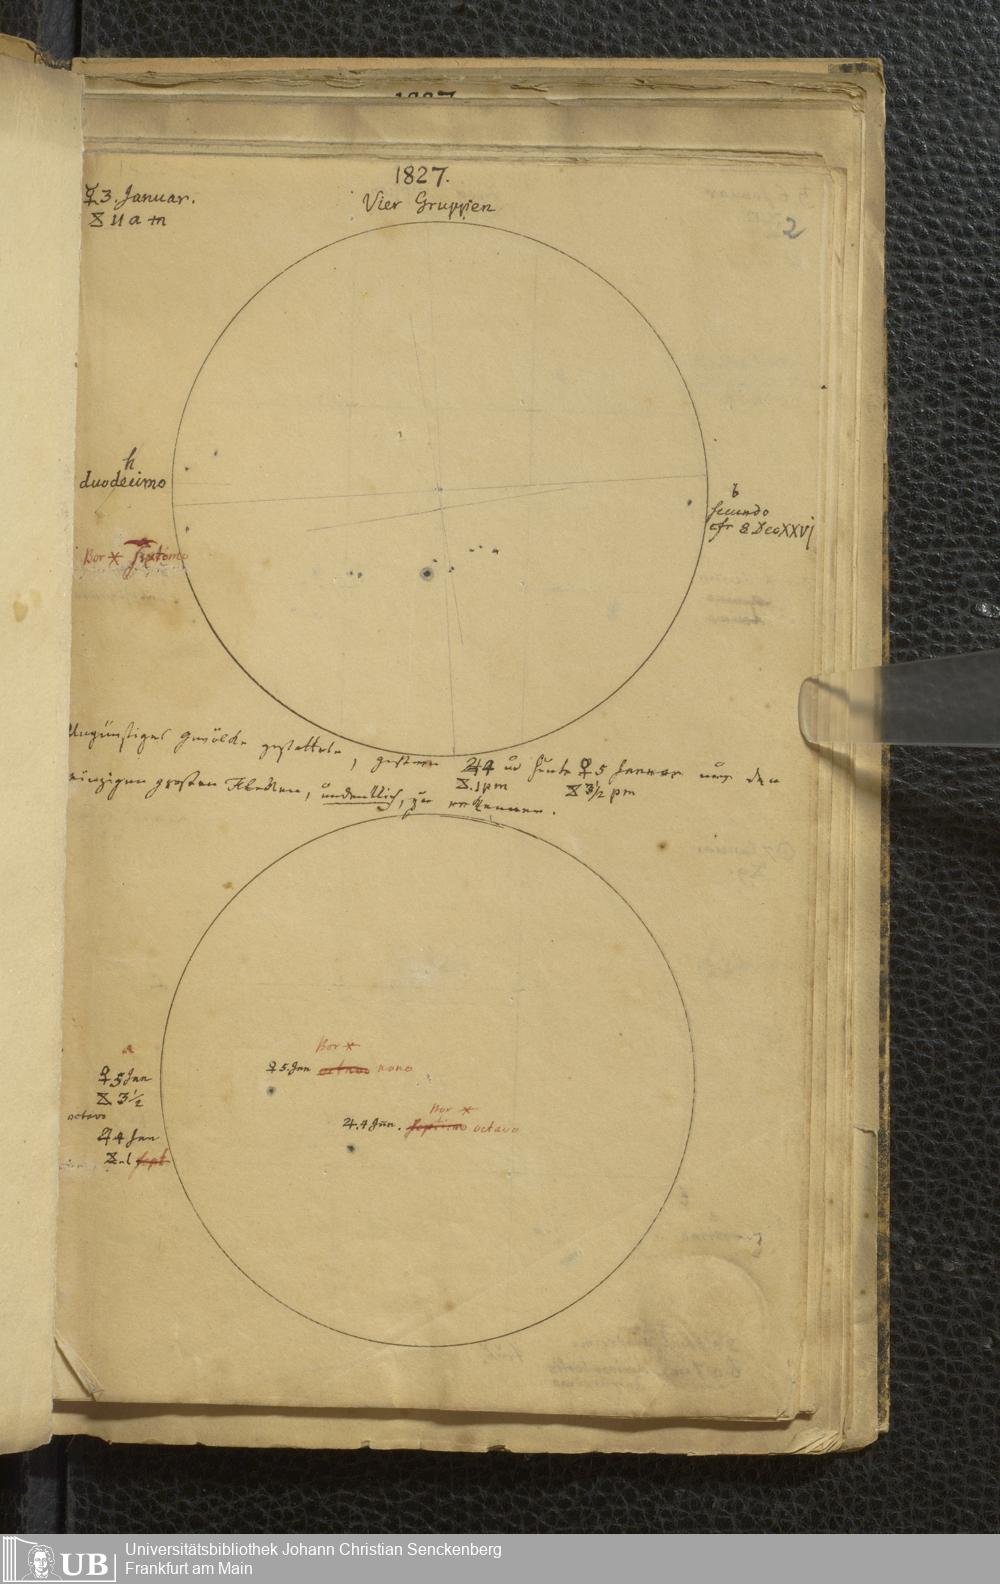 1827.
☿ 3. Januar.
Vier Gruppen
11 a m
2
h
duodecimo
b
secundo
cfr 8 Dec XXVI
Bor * Septimo
Ungünstiges Gewölke gestattete, gestern ♃ 4 und heute ♀ 5 Januar nur den
1 pm 3 1/2 pm
einzigen großen Flecken, undeutlich, zu erkennen.
a
Bor *
♀ 5 Jan
♀ 5. Jan octavo nono
3 1/2
octavo
Bor *
♃ 4 Jan
♃. 4 Jan. septimo octavo
1 sept
UB
Universitätsbibliothek Johann Christian Senckenberg
Frankfurt am Main